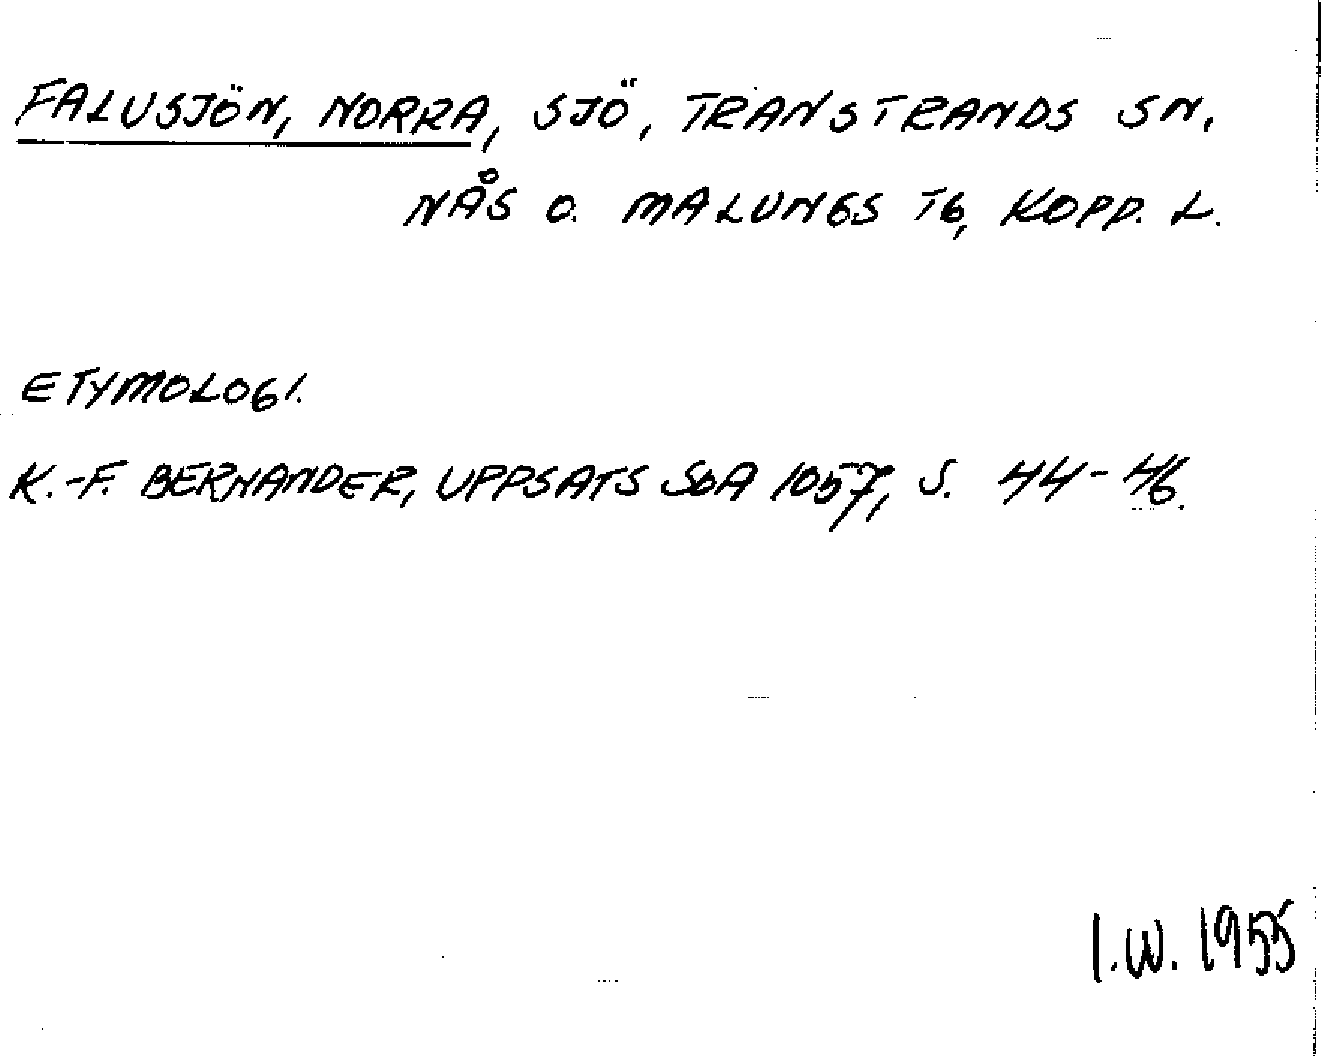 FALUSJÖN, NORRA, SJÖ, TRANSTRANDS SN,
NÅS O. MALUNGS TG, KOPP. L.
ETYMOLOGI.
K.-F. BERNANDER, UPPSATS SOA 1057, S. 44-46.
I.W. 1955